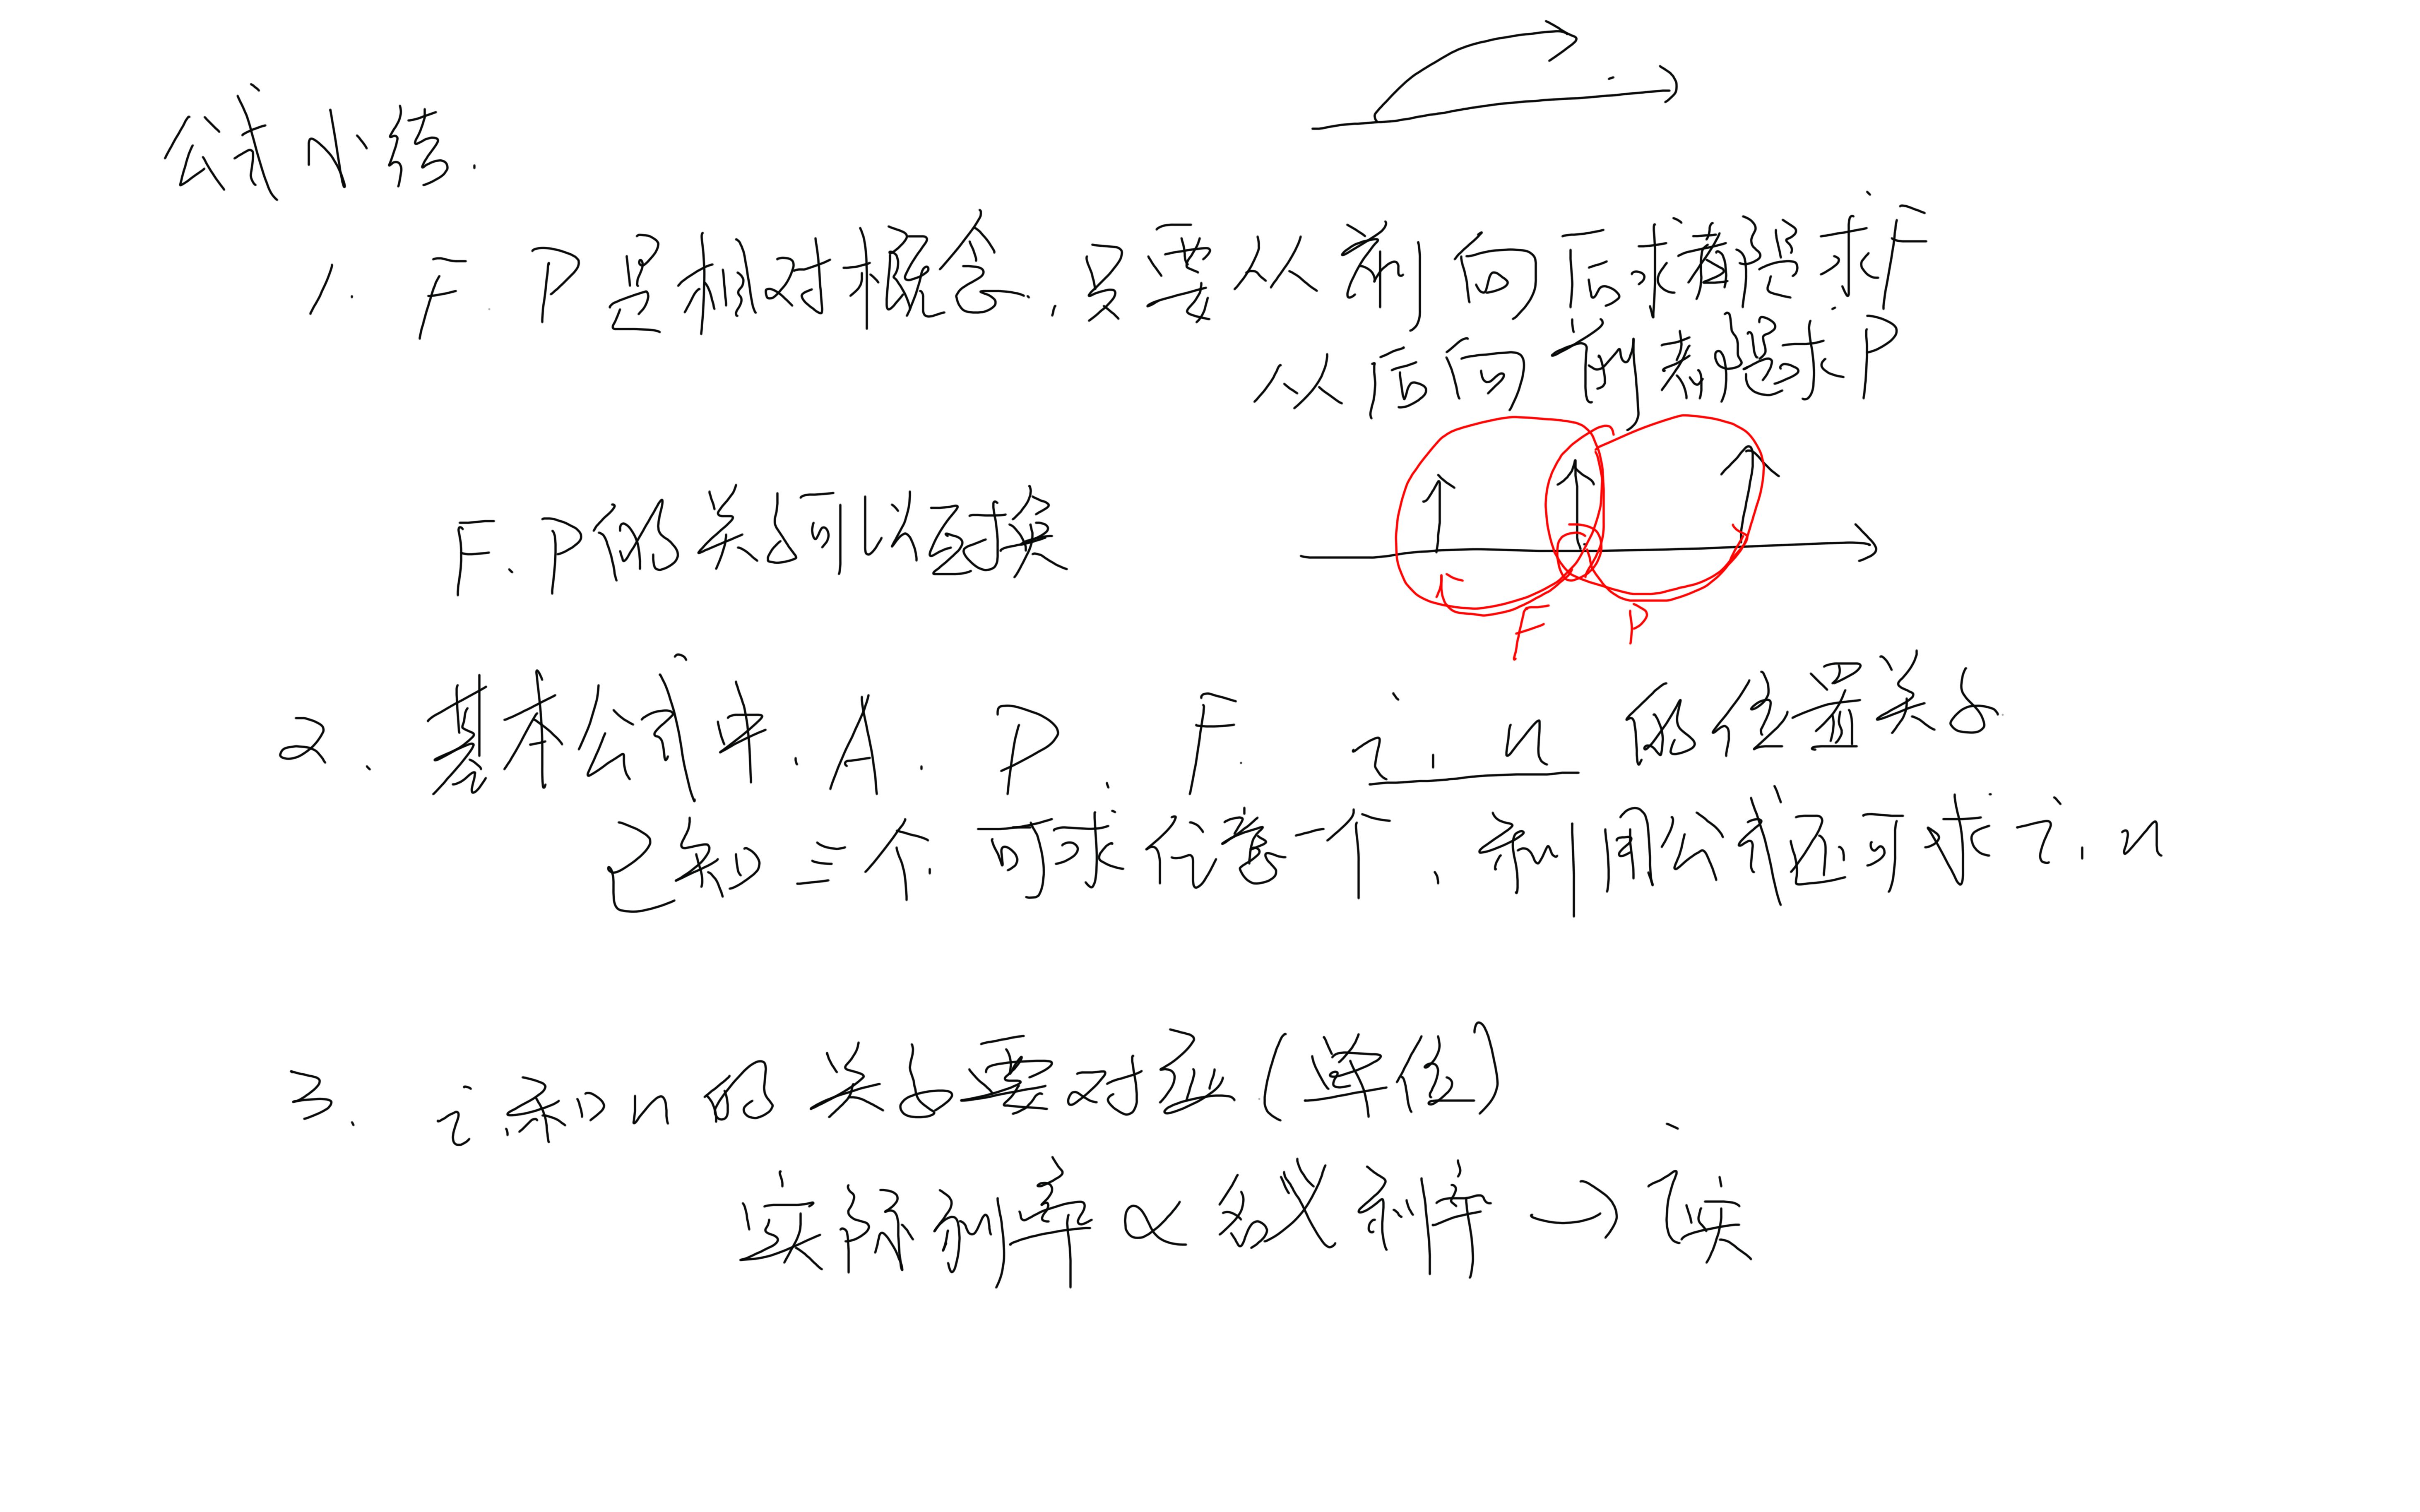 公式小结.
1. F P是相对概念.,只要从前向后求都是求F
从后向前都是求P
F. P的关系可以互换
F P
2. 基本公式中. A. P. F. i. n 的位置关系
已知二个.可求任意一个.利用公式还可求i. n
3. i.和n的关系要对应(单位)
实际利率 名义利率→i实